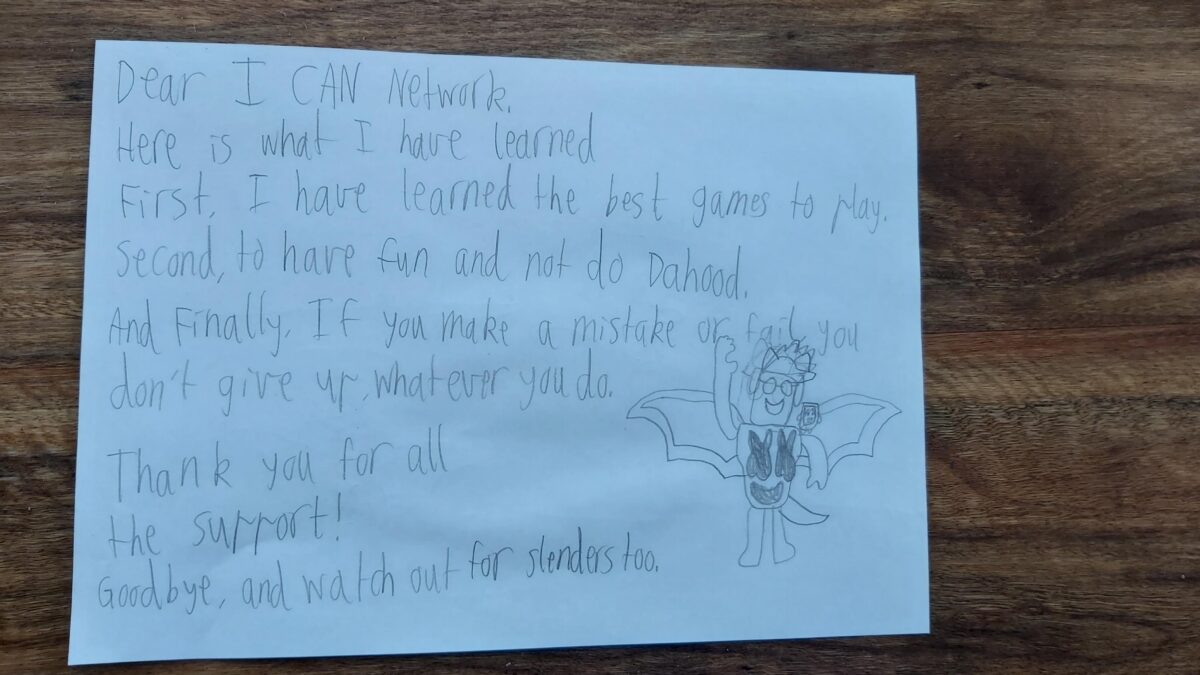 Dear I CAN Network.
Here is what I have learned
First, I have learned the best games to play.
Second, to have fun and not do Dahood.
And Finally, If you make a mistake or fail you
don't give up, whatever you do.
Thank you for all
the support!
Goodbye, and watch out for slenders too.